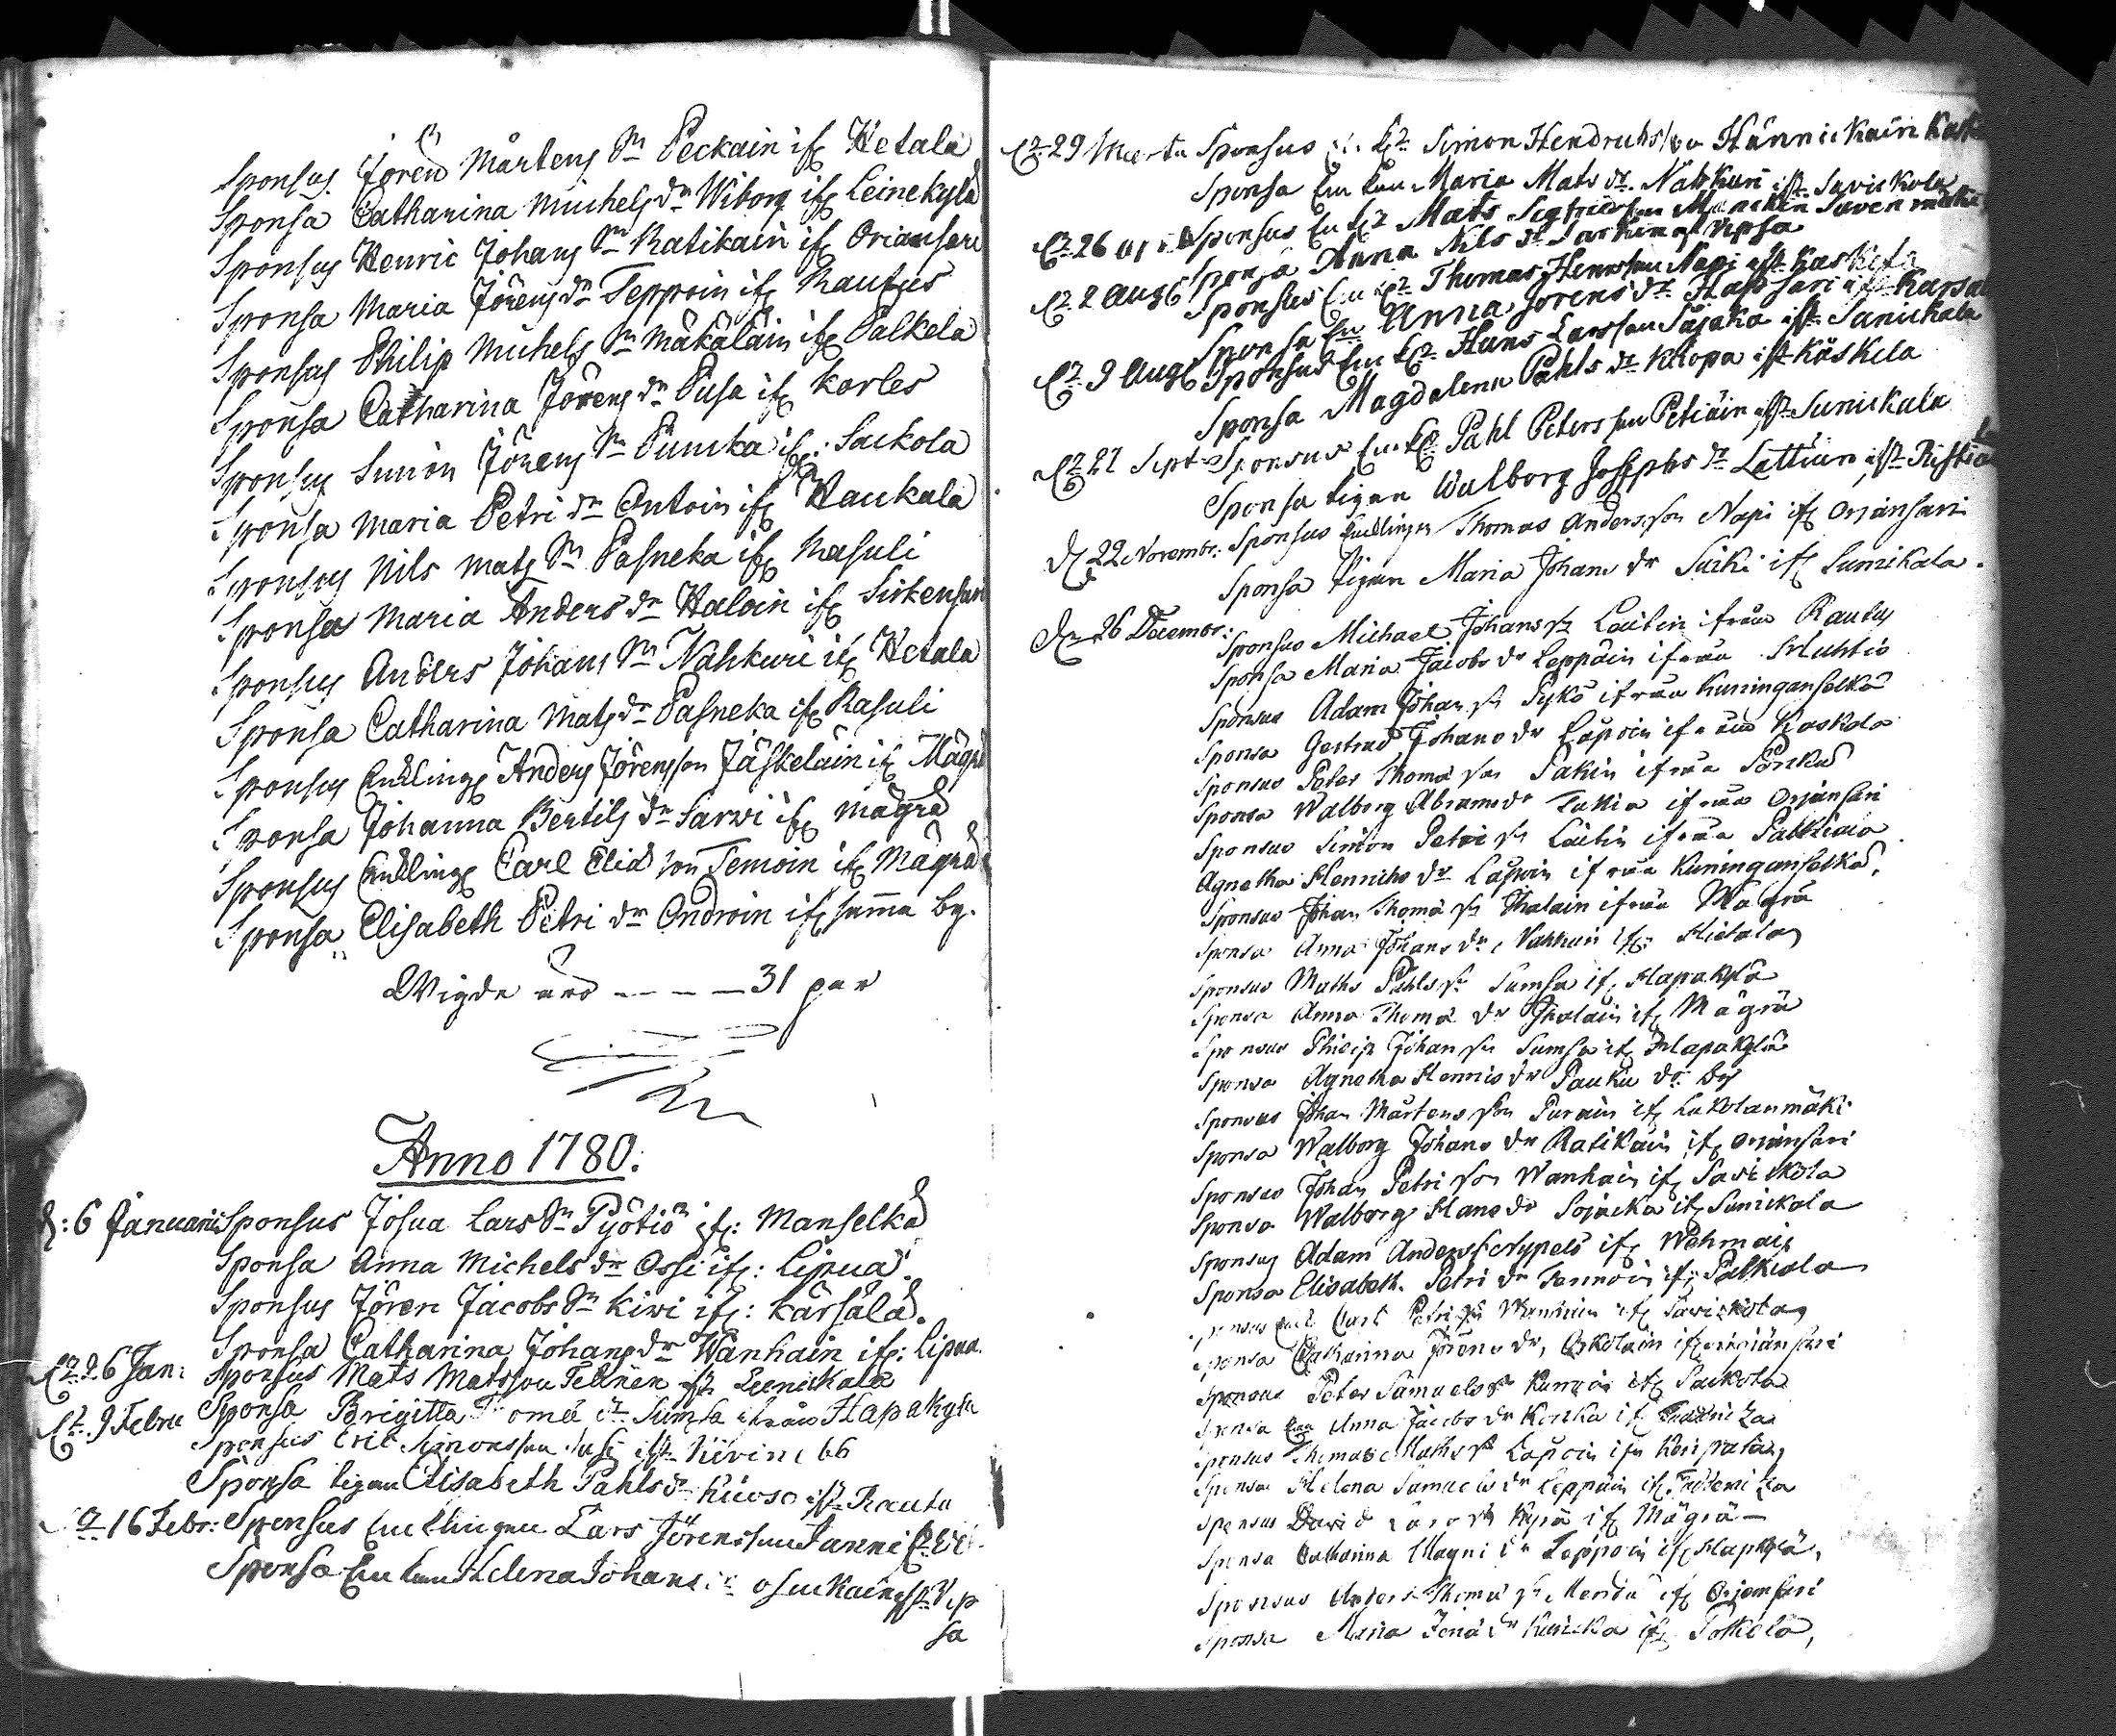 Sponsus Jören Mårtens Sn Peckain ifr Hetala
Sponsa Catharina Michels dr Wiborg ifr Leinekylä
Sponsus Henric Johans Sn Ratikain ifr Oriansari
Sponsa Maria Jörens dr Teppoin ifr Rautus
Sponsus Philip Michels Sn Mäkäläin ifr Palkela
Sponsa Catharina Jörens dr Pusa ifr Korles
Sponsus Simon Jörens Sn Pumka ifr: Sackola
Sponsa Maria Petri dr Ontoin ifr Haukala
Sponsus Nils Mats Sn Pasneka ifr Rasuli
Sponsa Maria Anders dr Haloin ifr Sirkensari
Sponsus Anders Johans Sn Nahkuri ifr Hetala
Sponsa Catharina Mats dr Pasneka ifr Rasuli
Sponsus Enklings Anders Jörensson Jäskeläin ifr Mägrä
Sponsa Johanna Bertils dr Sarwi ifr Mägrä
Sponsus Enklings Carl Elias son Temoin ifr Mägrä
Sponsa Elisabeth Petri dr Ondroin ifr samma by.
Wigde äro - - - - 31 par
Anno 1780.
d: 6 Januarii Sponsus Josua Lars Sn Pyötiö ifr: Manselkä
Sponsa Anna Michels dr Ossi ifr: Lipua.
Sponsus Jören Jacobs Sn Kiwi ifr: Karsala.
Sponsa Catharina Johans dr Wanhain ifr: Lipua.
dn 26 Jan: Sponsus Mats Matsson Tellnen ifr Leinickala
Sponsa Brigitta Thomæ dr Sumsa ifrån Hapakylä
dn 9 Febru Sponsus Eric Simonsson Susi ifr
Sponsa Pigan Elisabeth Pahls dr ifr Rautu
dn 16 Febr: Sponsus Enklingen Lars Jörensson Janni
Sponsa Enkan Helena Johans dr ifr Vep
sa
dn 29 Marti Sponsus Simon Hendrichsson Hännickain
Sponsa Enkan Maria Mats dr. Nahkuri ifr Savickola
dn 26 Sponsus Mats Sigfridsson
Sponsa Anna Nils dr Vepsa
dn 2 Aug Sponsus Thomas Hensson Napi ifr Kaskela
Sponsa Anna Jörens dr Hapsari ifr Karsala
dn 9 Aug Sponsus Hans Larsson Sojaka ifr Sunickala
Sponsa Magdalena Pahls dr Kiopa ifr Käskela
dn 27 Sept Sponsus Pahl Petersson Petiäin ifr Sunickala
Sponsa Pigan Walborg Josephs dr Lattuin ifr
d 22 Novembr: Sponsus Enklingen Thomas Andersson Napi ifr Orjansari
Sponsa Pigan Maria Johans dr Suiki ifr Sunikala.
dn 26 Decembr: Sponsus Michael Johans sn Laitin ifrån Rautu
Sponsa Maria Jacobs dr Leppäin ifrån Huhtio
Sponsus Adam Johan sn Sykö ifrån Kuninganselkä
Sponsa Gertrud Johans dr Lapoin ifrån Kaskala
Sponsus Peter Thomæ son Pakin ifrån Porcku
Sponsa Walborg Abrams dr Tukia ifrån Orjänsari
Sponsus Simon Petri sn Laitin ifrån Palkiala
Agnetha Henrichs dr Lapoin ifrån Kuninganselkä,
Sponsus Johan Thomæ sn Ihalain ifrån Mägrä
Sponsa Anna Johans dr, Nahkuri ifr Hietala
Sponsus Maths Pahls sn Sumsa ifr Hapakylä
Sponsa Anna Thomæ dr Ihalain ifr Mägrä
Sponsus Philip Johan sn Sumsa ifr Hapakylä
Sponsa Agnetha Hennis dr Pauku do by
Sponsus Johan Mårtens son Purain ifr Lukolanmäki
Sponsa Walborg Johans dr Ratikain ifr Orjänsari
Sponsus Johan Petri son Wanhain ifr Savickola
Sponsa Walborg Hans dr Sojacka ifr Sunickala
Sponsus Adam Anders ifr Wehmais
Sponsa Elisabeth Petri dr Tannoin ifr Palkiala
Sponsus Enk Carl Petri sn Wanhain ifr Savickola
Sponsa Catharina Jörens dr, Oskolain ifr Oriänsari
Sponsus Peter Samuels sn ifr Sackola
Sponsa Anna Jacobs dr Koncka ifr
Sponsus Thomas Maths sn Lapoin ifr
Sponsa Helena Samuels dr Leppäin ifr
Sponsus David Lars sn ifr Mägrä
Sponsa Catharina Magni dr Teppoin ifr Hapkylä,
Sponsus Anders Thomæ sn ifr Orjansari
Sponsa Maria dr ifr Palkela,